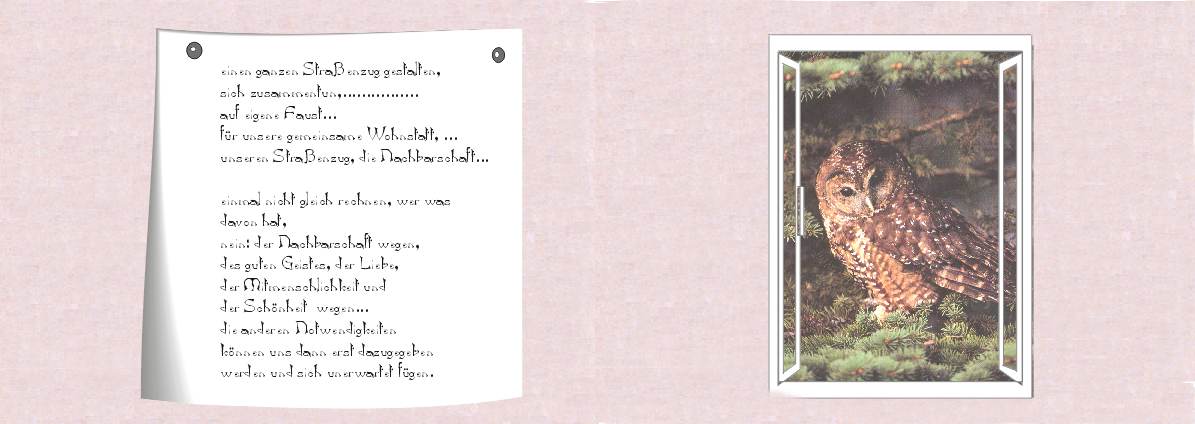 einen ganzen Straßenzug gestalten,
sich zusammentun,................
auf eigene Faust...
für unsere gemeinsame Wohnstatt, ...
unseren Straßenzug, die Nachbarschaft...
einmal nicht gleich rechnen, wer was
davon hat,
nein: der Nachbarschaft wegen,
des guten Geistes, der Liebe,
der Mitmenschlichkeit und
der Schönheit wegen...
die anderen Notwendigkeiten
können uns dann erst dazugegeben
werden und sich unerwartet fügen.